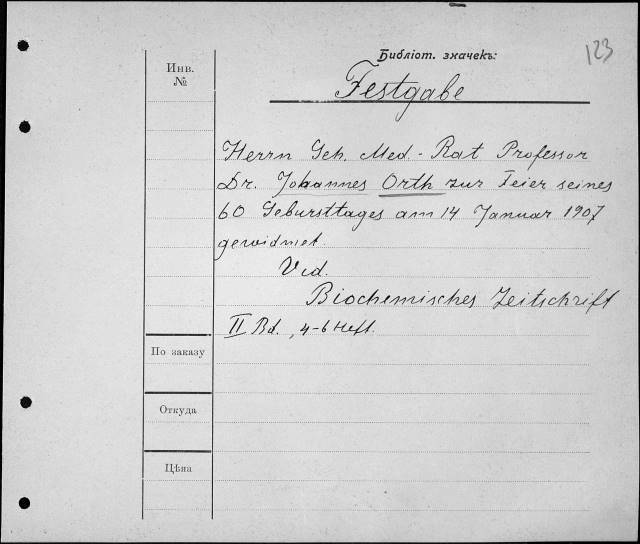 Библіот. значекъ:
123
Инв.
№
Festgabe
Herrn Geh. Med.-Rat Professor
Dr. Johannes Orth zur Feier seines
60 Gebursttages am 14 Januar 1907
gewidmet.
Vid.
Biochemisches Zeitschrift
II Bd., 4-6 Heft.
По заказу
Откуда
Цѣна